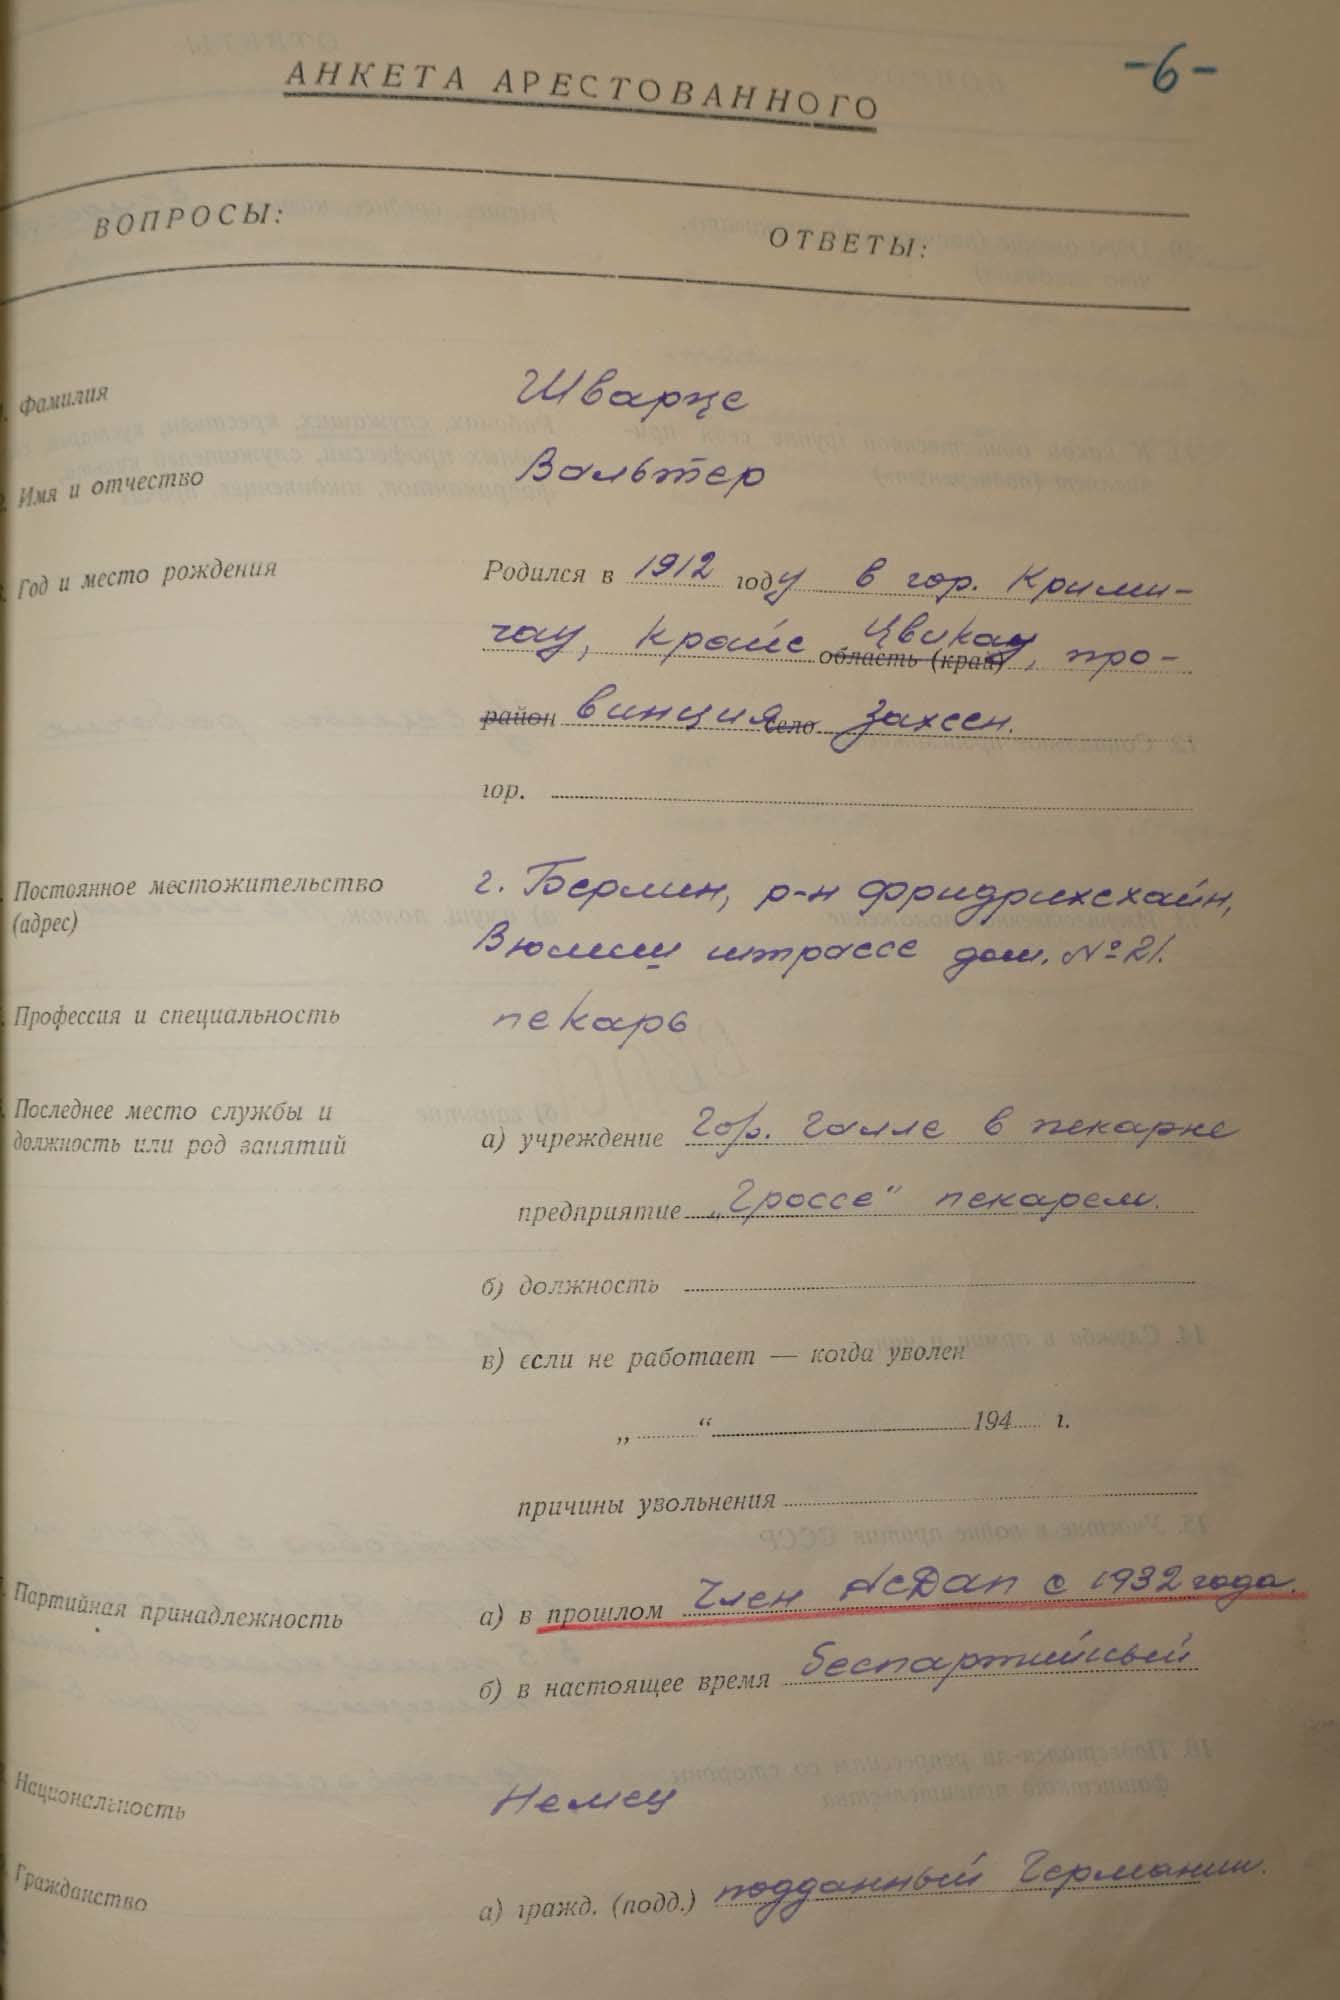 -6-
АНКЕТА АРЕСТОВАННОГО
ВОПРОСЫ: ОТВЕТЫ:
Фамилия Шварце
Имя и отчество Вальтер
Год и место рождения Родился в 1912 году в гор. Крими-
чау, Крайс Цвикау, область (край) про-
район винция село Захсен.
гор.
Постоянное местожительство г. Берлин, р-н Фридрихсхайн,
(адрес) штрассе дом. №21.
Профессия и специальность пекарь
Последнее место службы и
должность или род занятий а) учреждение Гор. Галле в пекарне
предприятие „Гроссе“ пекарем.
б) должность
в) если не работает — когда уволен
„ “ 194 г.
причины увольнения
Партийная принадлежность а) в прошлом Член НСДАП с 1932 года.
б) в настоящее время беспартийный
Национальность Немец
Гражданство а) гражд. (подд.) подданный Германии.